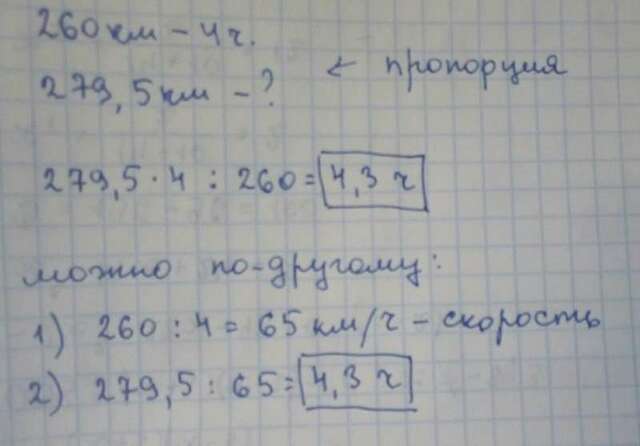 260 км – 4 ч.
279,5 км – ?
← пропорция
279,5 · 4 : 260 = 4,3 ч
можно по-другому:
1) 260 : 4 = 65 км/ч – скорость
2) 279,5 : 65 = 4,3 ч